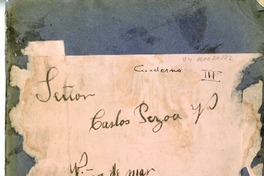 Cuaderno III
Señor
Carlos Pezoa V
Viña de mar